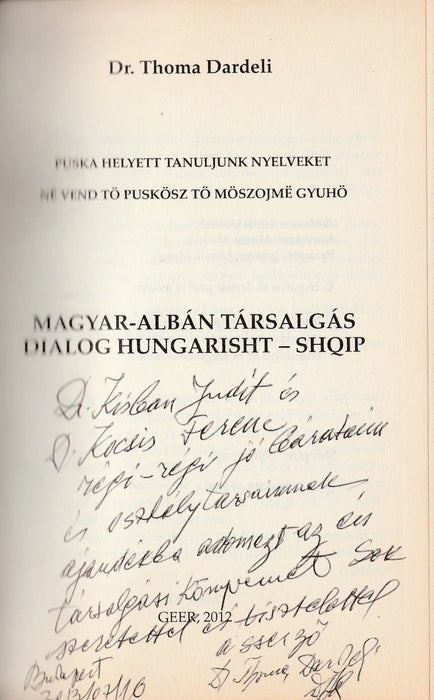 Dr. Thoma Dardeli
PUSKA HELYETT TANULJUNK NYELVEKET
NË VEND TÖ PUSKÖSZ TÖ MÖSZOJMË GYUHÖ
MAGYAR-ALBÁN TÁRSALGÁS
DIALOG HUNGARISHT – SHQIP
Dr. Kisban Judit és
Dr. Kocsis Ferenc
régi-régi jó barátaim
és osztálytársaimnak
ajándékba adom ezt az én
társalgási könyvemet Sok
GEER, 2012
szeretettel és tisztelettel
a szerző
Budapest Dr Thoma Dardeli